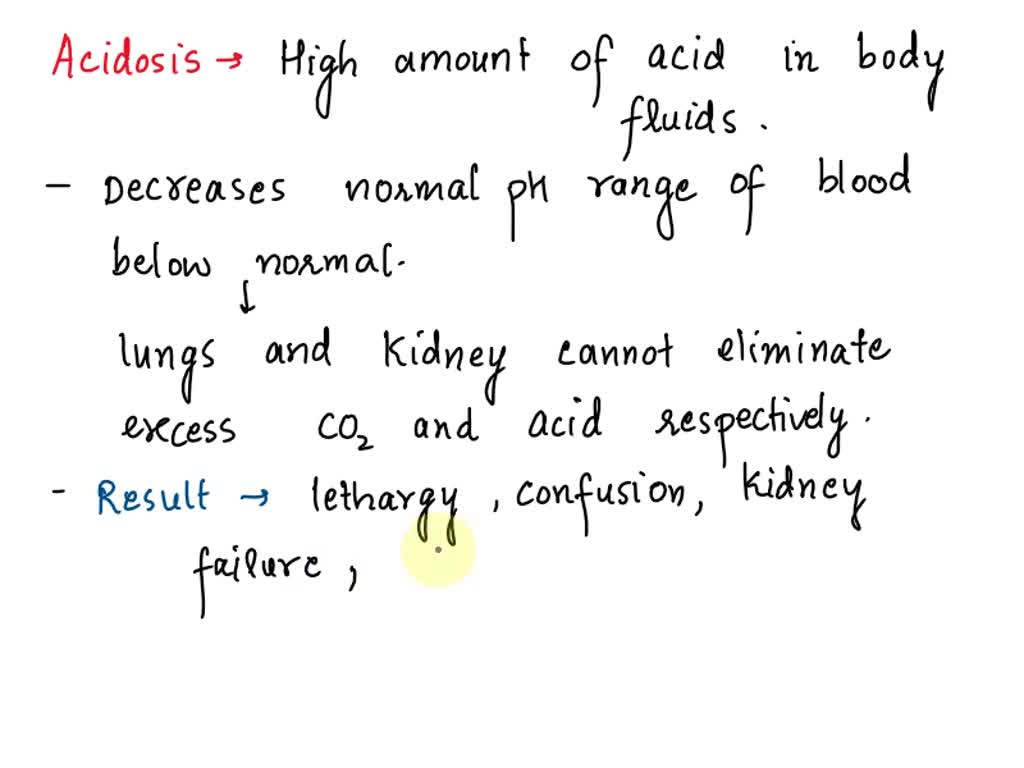 Acidosis → High amount of acid in body
fluids.
- Decreases normal pH range of blood
below normal.
↓
lungs and Kidney cannot eliminate
excess CO₂ and acid respectively.
- Result → lethargy, confusion, Kidney
failure,